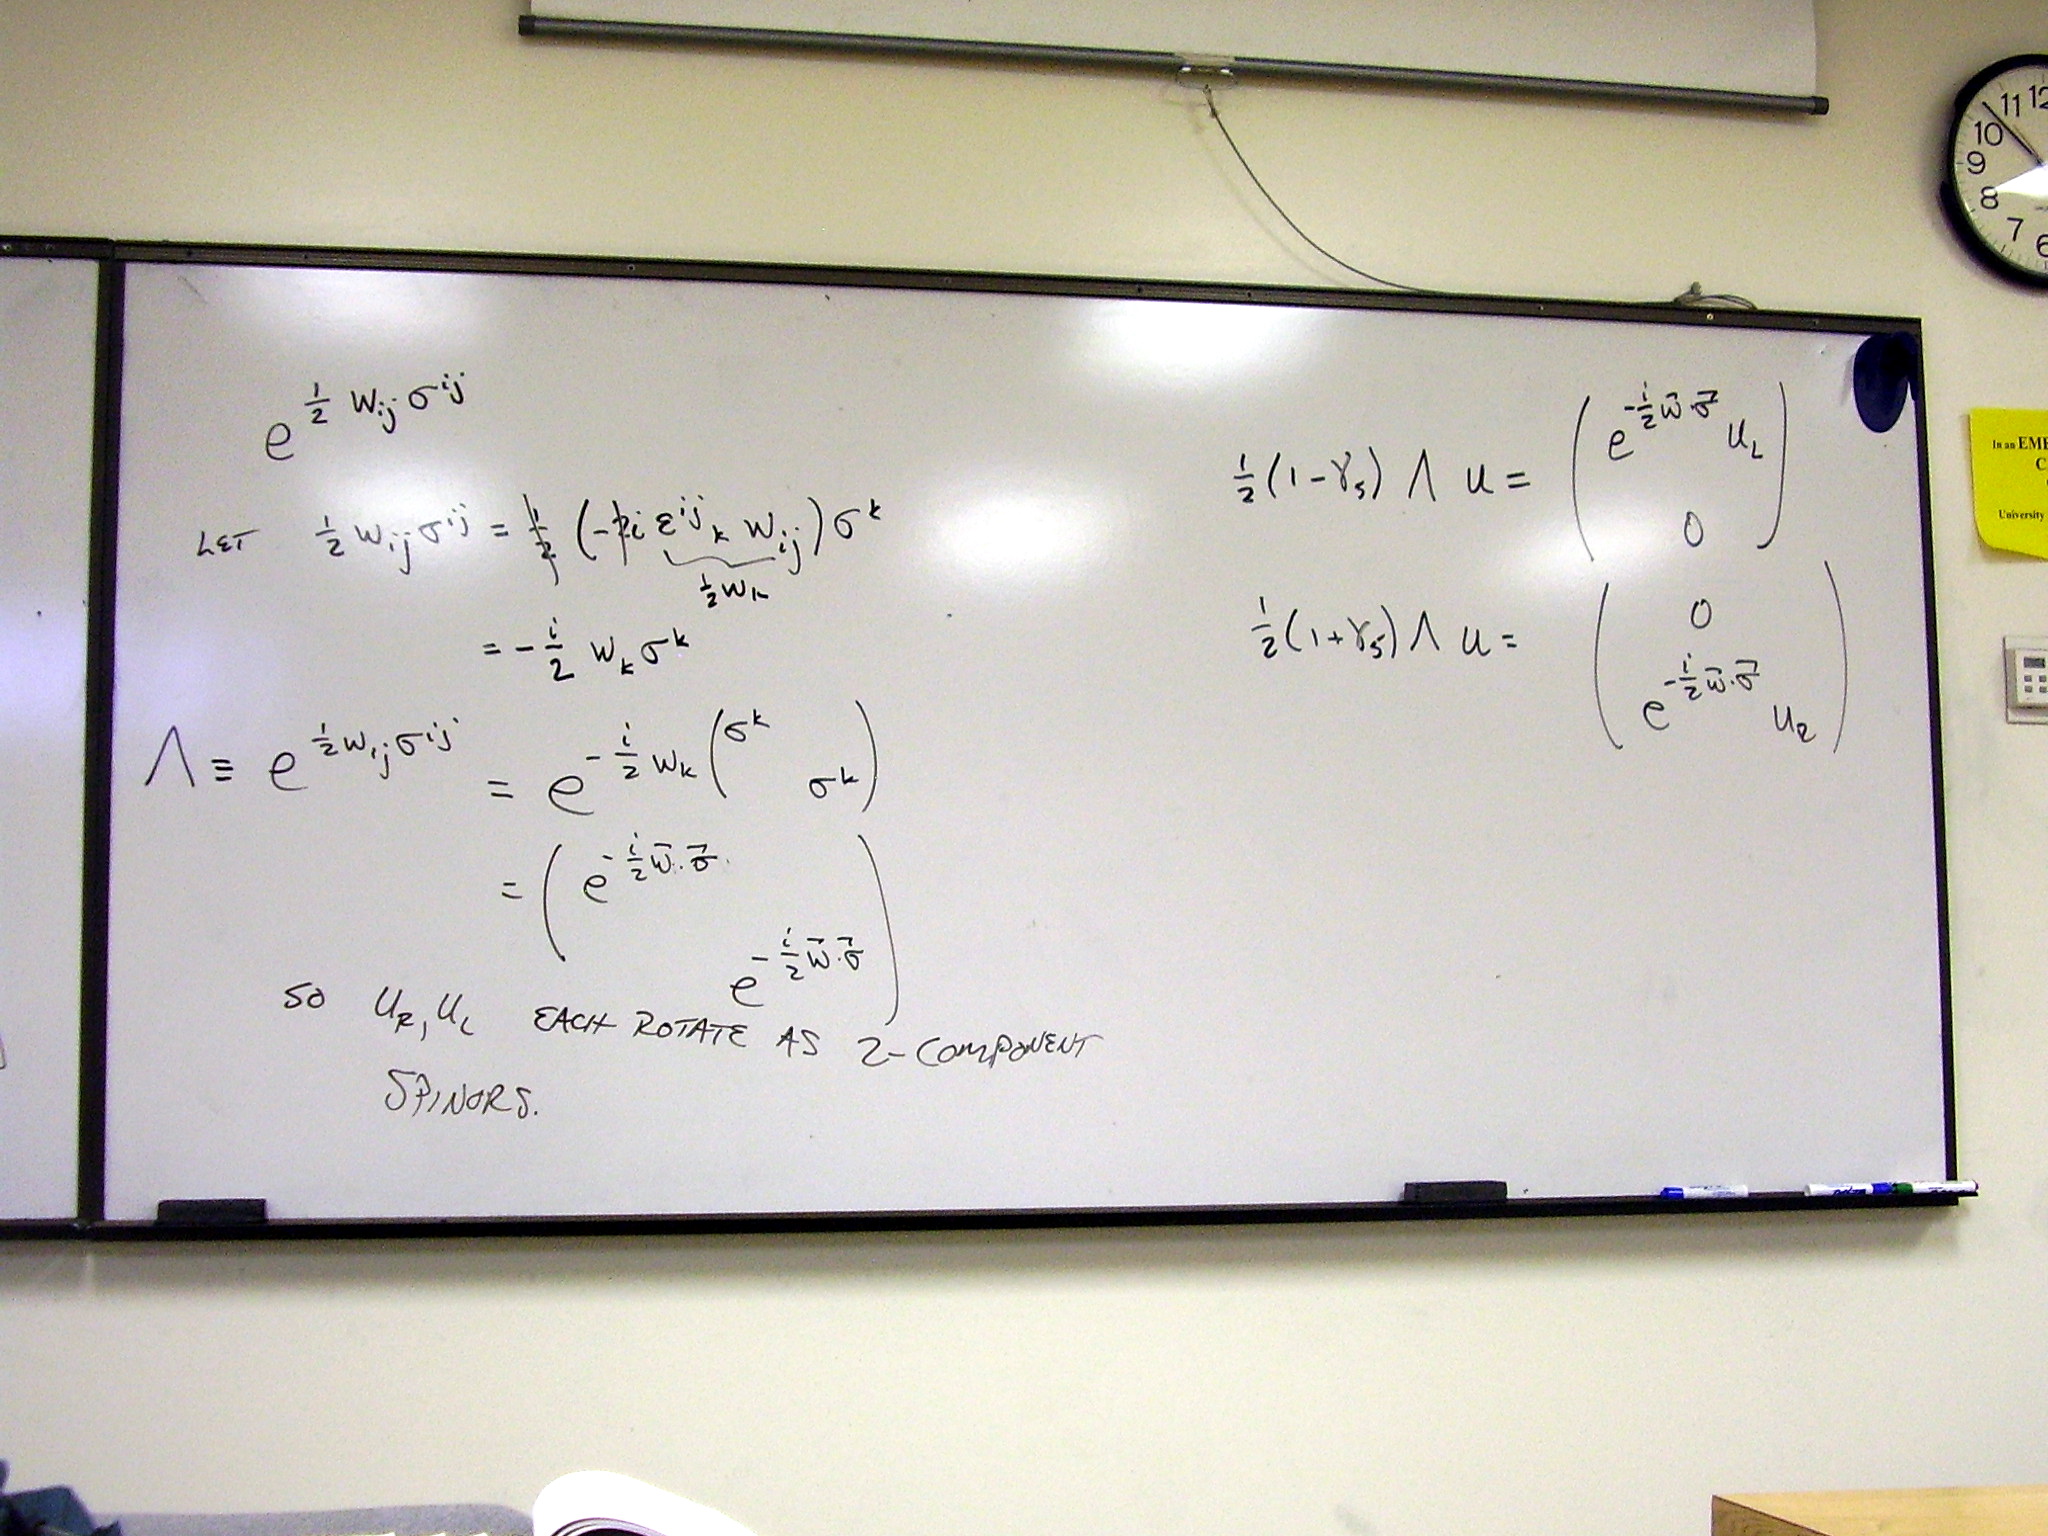 e^{½ w_{ij} σ^{ij}}
LET ½ w_{ij} σ^{ij} = ½ (-2i ε^{ij}_k w_{ij}) σ^k
½ w_k
= -i/2 w_k σ^k
Λ ≡ e^{½ w_{ij} σ^{ij}} = e^{-i/2 w_k (σ^k σ^k)}
= (e^{-i/2 w⃗·σ⃗}
e^{-i/2 w⃗·σ⃗})
SO u_R, u_L EACH ROTATE AS 2-COMPONENT
SPINORS.
½(1-γ_5) Λ u = (e^{-i/2 w⃗·σ⃗} u_L
0)
½(1+γ_5) Λ u = (0
e^{-i/2 w⃗·σ⃗} u_R)
11 12
10
9
8
7
6
In an EME
C
University